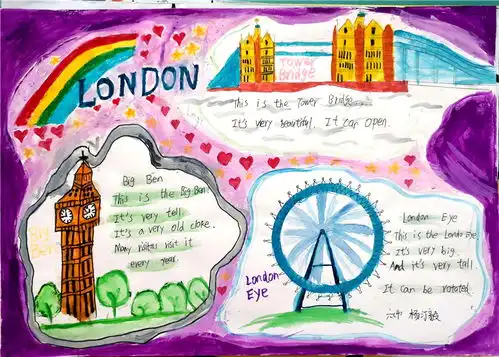 LONDON
Tower
Bridge
This is the Tower Bridge.
It's very beautiful. It can open.
Big Ben
This is the Big Ben.
It's very tell.
It's a very old
Many visit it
every year.
Big
Ben
London
Eye
London Eye
This is the Londo Eye.
It's very big.
And it's very tall.
It can be rotated.